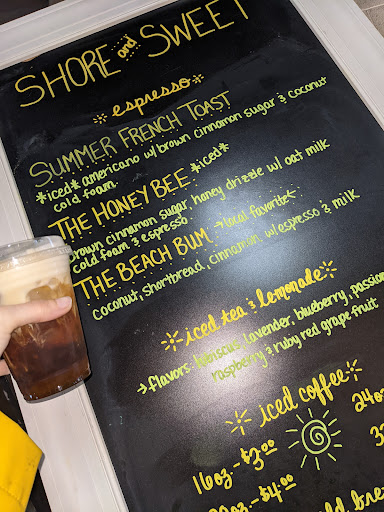 SHORE and SWEET
espresso
SUMMER FRENCH TOAST
*iced* americano w/ brown cinnamon sugar & coconut
cold foam
THE HONEY BEE *iced*
brown cinnamon sugar, honey drizzle w/ oat milk
cold foam & espresso
THE BEACH BUM → local favorite ←
coconut, shortbread, cinnamon, w/ espresso & milk
iced tea & lemonade
→ flavors: hibiscus, lavender, blueberry, passion
raspberry & ruby red grapefruit
iced coffee
16oz - $3.00
24o
- $4.00